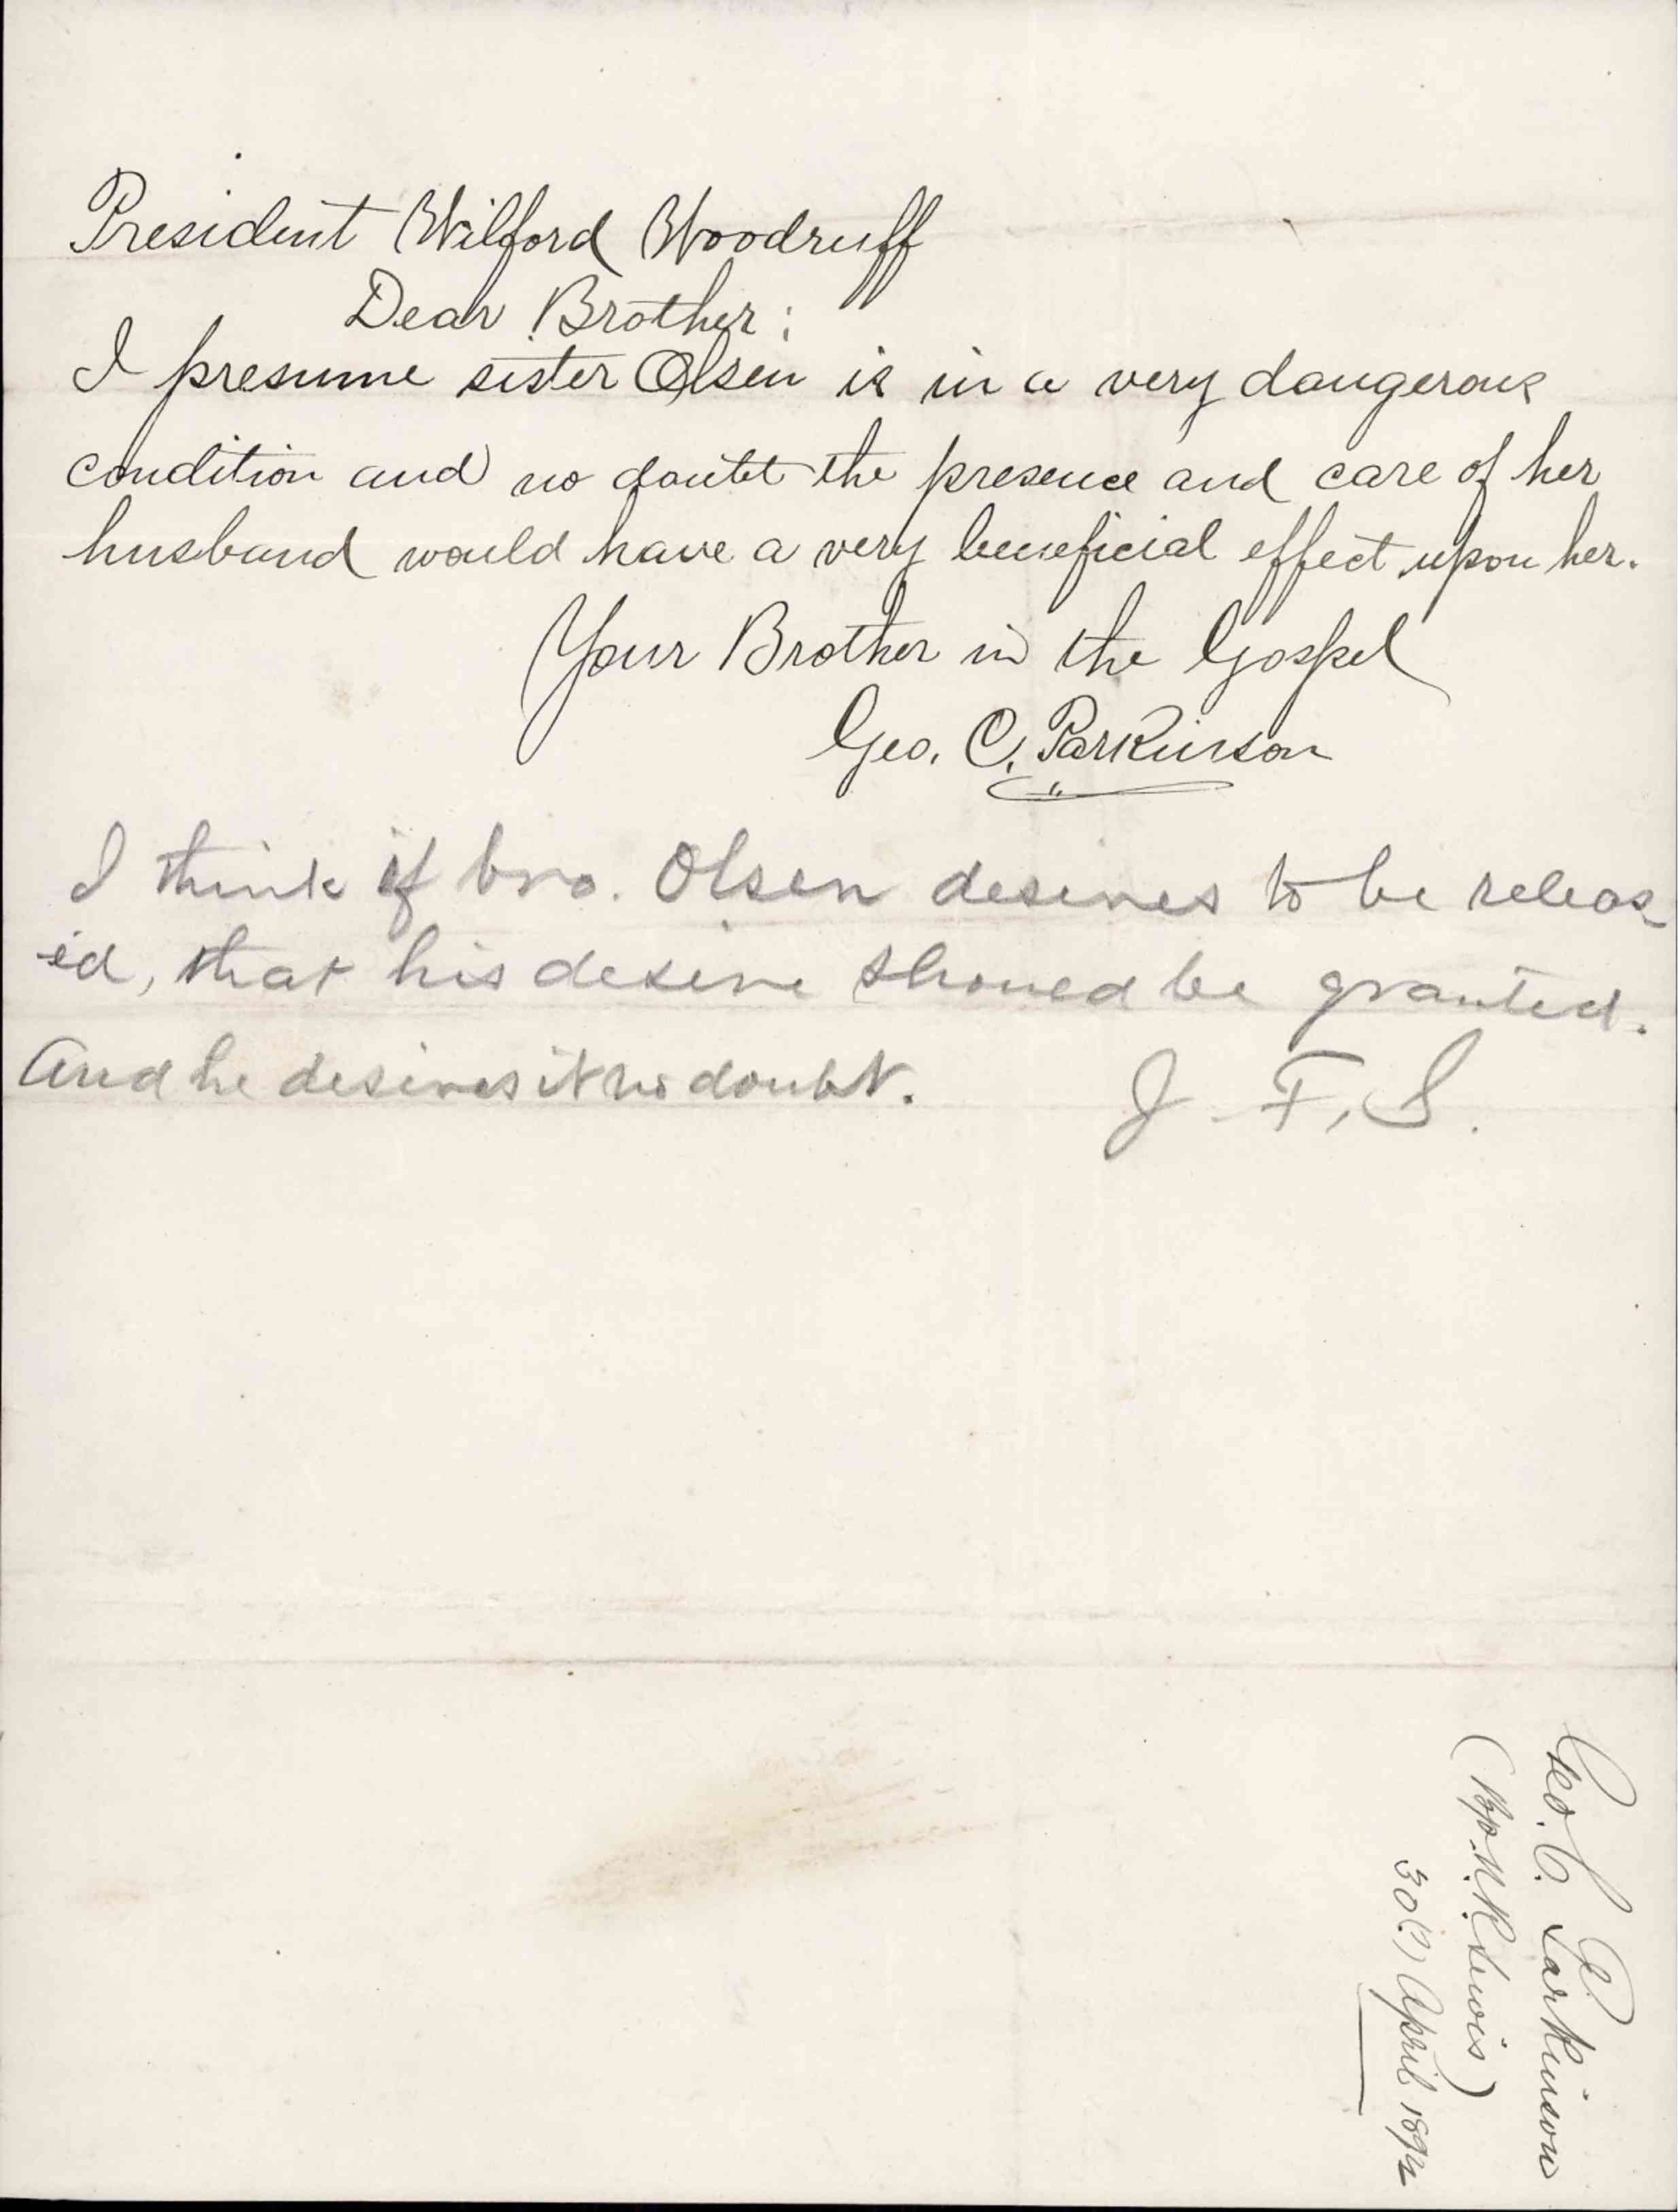 President Wilford Woodruff
Dear Brother;
I presume sister Olsen is in a very dangerous
condition and no doubt the presence and care of her
husband would have a very beneficial effect upon her.
Your Brother in the Gospel
Geo. C. Parkinson
I think if bro. Olsen desires to be releas
ed, that his desire should be granted.
And he desires it no doubt. J. F. S.
Geo. C. Parkinson
Lewis)
30(?) April 189